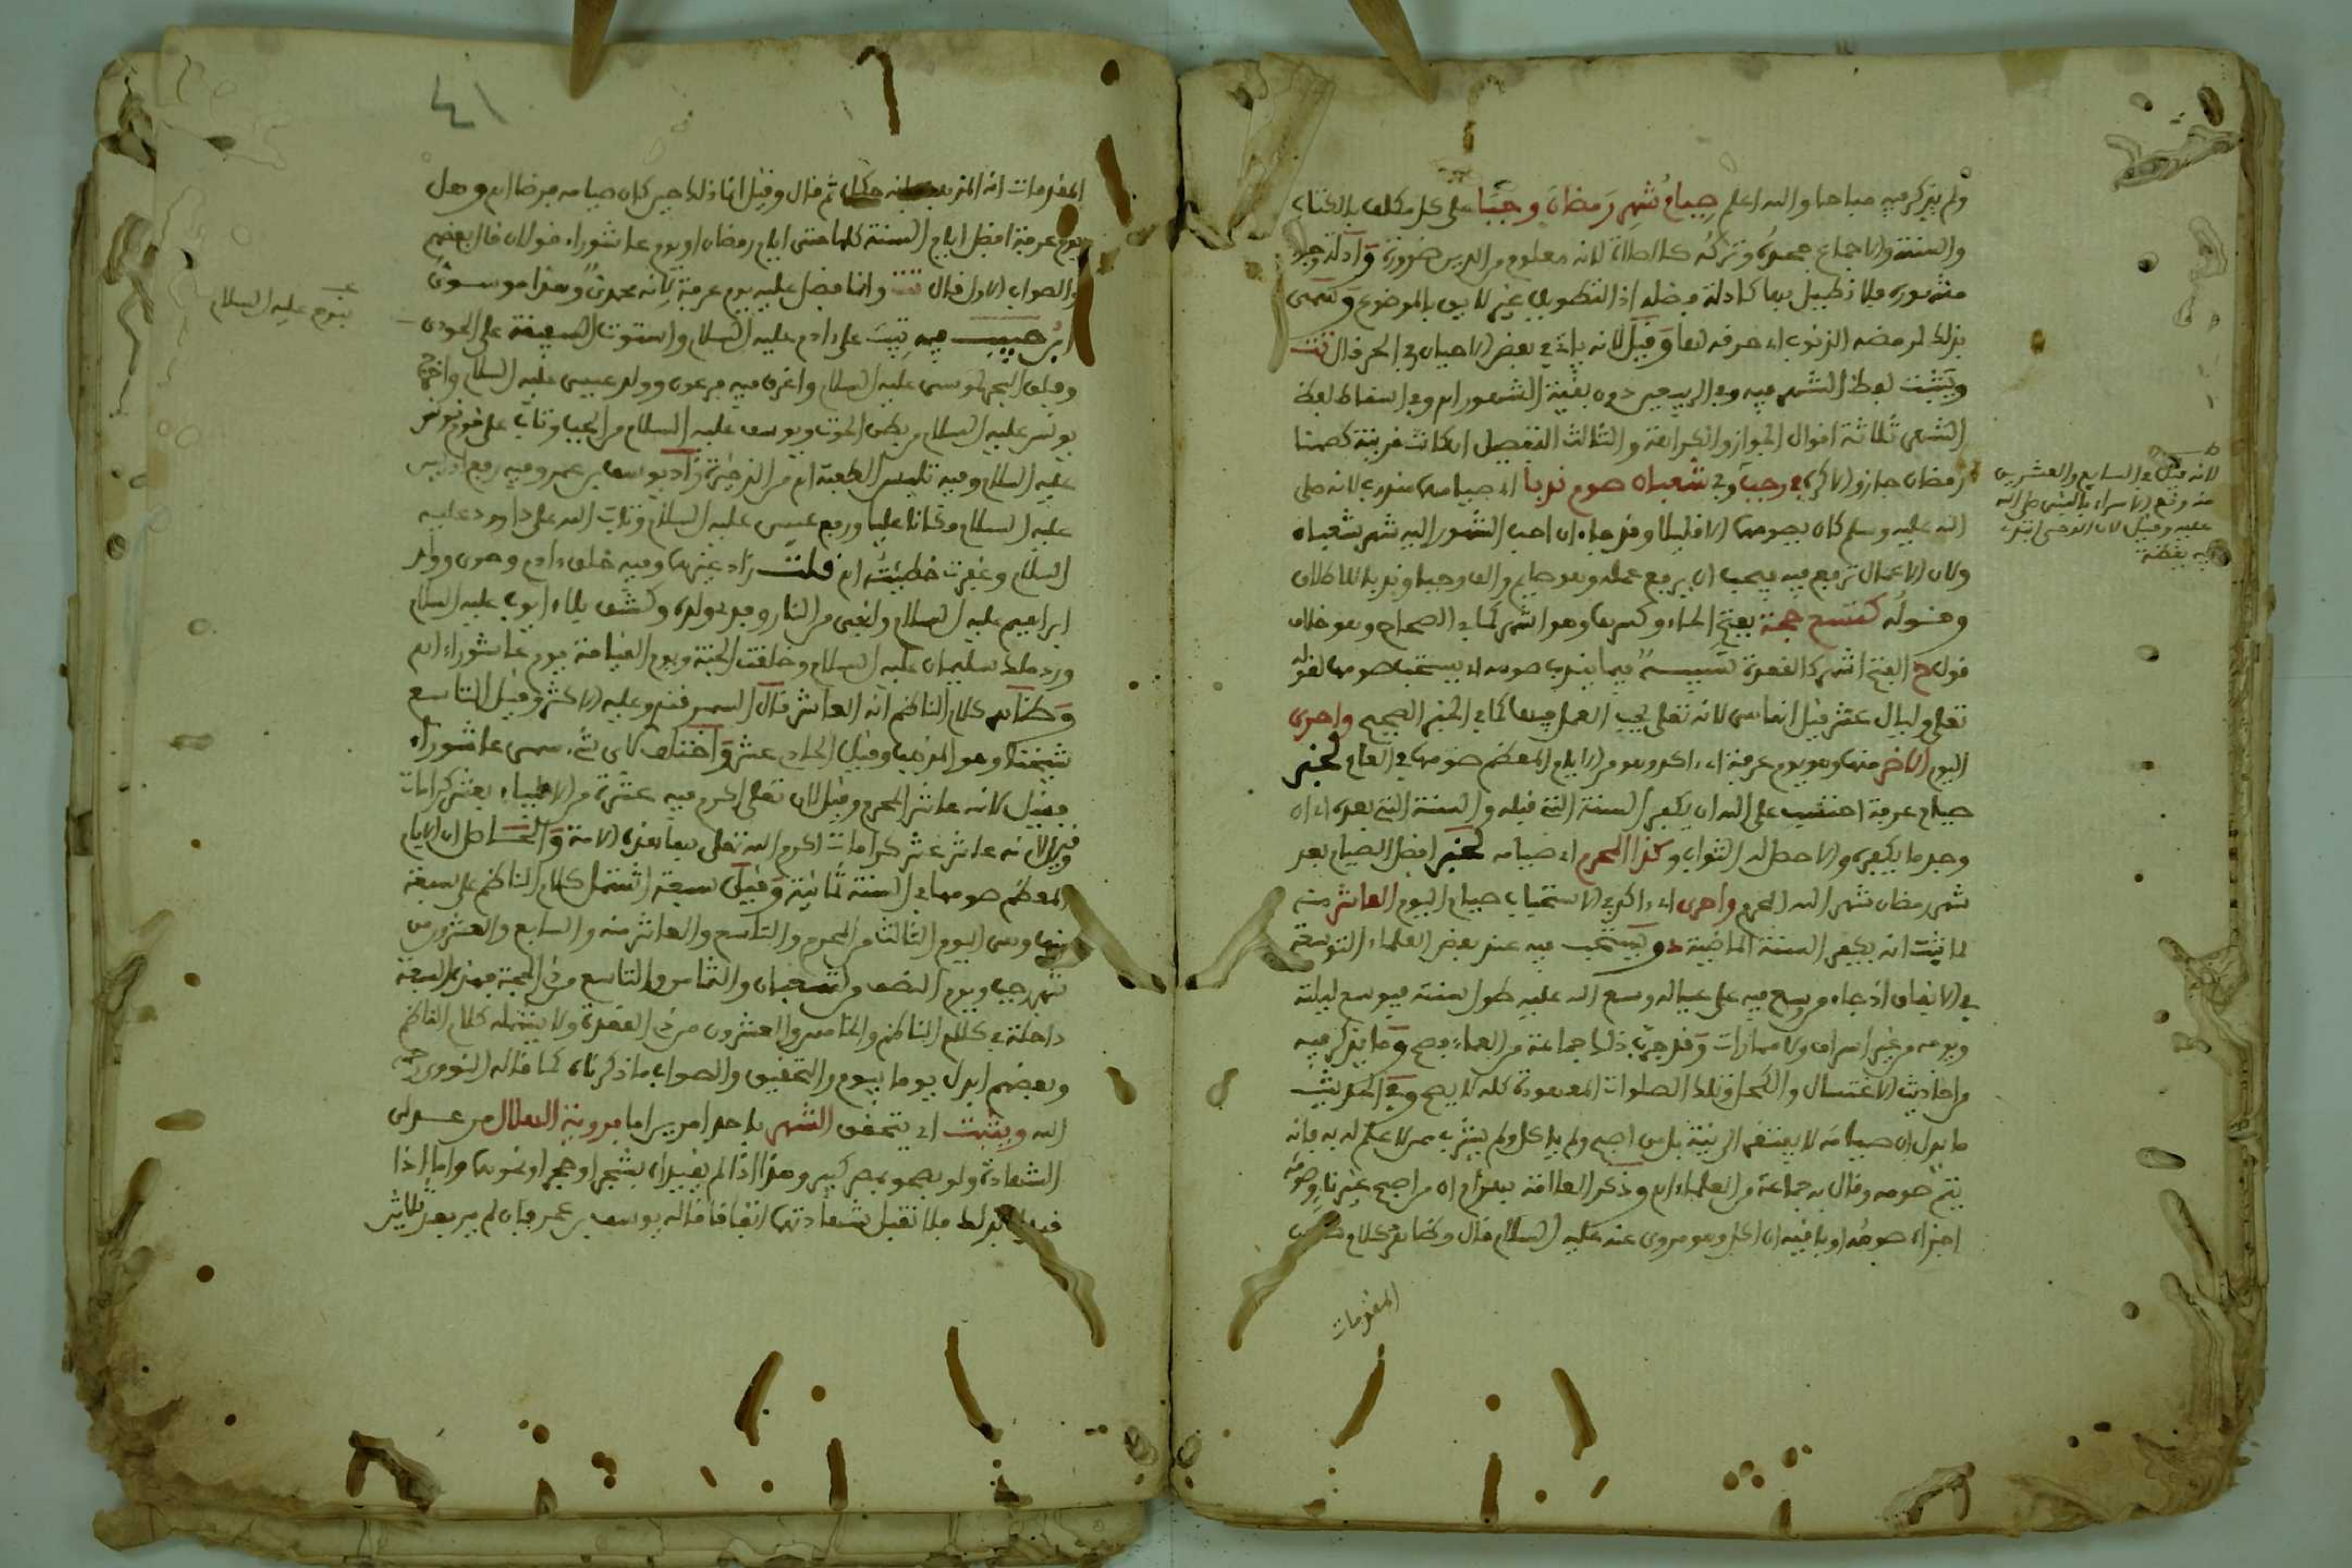 ولم يذكر فيه مباحا والله اعلم صيام شهر رمضان وجبا على كل مكلف بالكتاب
والسنة والاجماع جحده وتركه كالصلاة لانه معلوم من الدين ضرورة وادلة وجوبه
مشهورة فلا نطيل بها كادلة فضله اذ التطويل غير لايق بالموضوع وسمى
بذلك لرمضه الذنوب اي حرقه لها وقيل لانه ياتي في بعض الاحيان في الحر قال تت
ويثبت لفظ الشهر فيه وفي الربيعين دون بقية الشهور اه وفي اسقاط لفظ
الشهر ثلاثة اقوال الجواز والكراهة والثالث التفصيل ان كانت قرينة كصمنا
رمضان جاز والا كره في رجب وفي شعبان صوم ندبا اي صيامهما مندوب لانه صلى
الله عليه وسلم كان يصومهما الا قليلا وقد جاء ان احب الشهور اليه شهر شعبان
ولان الاعمال ترفع فيه فيحب ان يرفع عمله وهو صايم والف وجبا وندبا للاطلاق
وقوله كتسع حجة بفتح الحاء وكسرها وهو اشهر كما في الصحاح وهو خلاف
قول ح الفتح اشهر كالقعدة تنبيه فيما يندب صومه اي يستحب صومها لقوله
تعلى وليال عشر قيل انها هي لانه تعلى يحب العمل فيها كما في الخبر الصحيح واحرى
اليوم الاخر منها وهو يوم عرفة اي اكد وهو من الايام المعظم صومها في العام لخبر
صيام عرفة احتسب على الله ان يكفر السنة التي قبله والسنة التي بعده اي ان
وجد ما يكفره والا حصل له الثواب وكذا المحرم اي صيامه لخبر افضل الصيام بعد
شهر رمضان شهر الله المحرم واحرى اي اكد في الاستحباب صيام اليوم العاشر منه
لما ثبت انه يكفر السنة الماضية ويستحب فيه عند بعض العلماء التوسعة
في الانفاق اذ جاء من وسع فيه على عياله وسع الله عليه طول سنته فيوسع ليلته
ويومه من غير اسراف ولا مماراة وقد جرب ذلك جماعة من العلماء فصح وما يذكر فيه
من احاديث الاغتسال والكحل وتلك الصلوات المعهودة كله لا يصح وفي الحديث
ما يدل ان صيامه لا يفتقر الى نية بل من اصبح ولم ياكل ولم يشرب ممن لا علم له به فانه
يتم صومه وقال به جماعة من العلماء اه وذكر العلامة بهرام ان من اصبح غير ناو صومه
اجزاه صومه او باقيه ان اكل وهو مروي عنه عليه السلام قال وظاهر كلام صاحب
المقدمات
لانه قيل في السابع والعشرين
منه وقع الاسراء بالنبي صلى الله
عليه وقيل لان الوحي ابتدى
فيه يقظة
٤١
المقدمات انه المذهب ثم قال وقيل انما ذلك حين كان صيامه فرضا اه وهل
يوم عرفة افضل ايام السنة كلها حتى ايام رمضان او يوم عاشوراء قولان قال بعضهم
والصواب الاول قال تت وانما فضل عليه يوم عرفة لانه محمدي وهذا موسوي
ابن حبيب فيه تيب على ادم عليه السلام واستوت السفينة على الجودي
وفلق البحر لموسى عليه السلام واغرق فيه فرعون وولد عيسى عليه السلام واخرج
يونس عليه السلام من بطن الحوت ويوسف عليه السلام من الجب وتاب على قوم يونس
عليه السلام وفيه تلبس الكعبة اه من الذخيرة زاد يوسف بن عمر وفيه رفع ادريس
عليه السلام مكانا عليا ورفع عيسى عليه السلام وتاب الله على داوود عليه
السلام وغفرت خطيئته اه قلت زاد غيرهما وفيه خلق ادم وحوى وولد
ابراهيم عليه السلام وانجى من النار وفدي ولده وكشف بلاء ايوب عليه السلام
ورد ملك سليمان عليه السلام وخلقت الجنة ويوم القيامة يوم عاشوراء اه
وظاهر كلام الناظم انه العاشر قال السمرقندي وعليه الاكثر وقيل التاسع
شيخنا وهو المذهب وقيل الحادي عشر واختلف لاي شيء سمي عاشوراء
فقيل لانه عاشر المحرم وقيل لان تعلى اكرم فيه عشرة من الانبياء بعشر كرامات
وقيل لانه عاشر عشر كرامات اكرم الله تعلى بها هذه الامة والحاصل ان الايام
المعظم صومها في السنة ثمانية وقيل سبعة اشتمل كلام الناظم على سبعة
منها وهي اليوم الثالث من المحرم والتاسع والعاشر منه والسابع والعشرون من
شهر رجب ويوم النصف من شعبان والثامن والتاسع من ذي الحجة فهذه السبعة
داخلة في كلام الناظم والخامس والعشرون من ذي القعدة ولا يشمله كلام الناظم
وبعضهم ابدل يوما بيوم والتحقيق والصواب ما ذكرناه كما قاله النووي رحمه
الله ويثبت اي يتحقق الشهر باحد امرين اما برؤية الهلال من عدلى
الشهادة ولو بصحو بمصر كبير وهذا اذا لم يقيداه بشجر او حجر او نحوهما واما اذا
قيداه بذلك فلا تقبل شهادتهما اتفاقا قاله يوسف بن عمر فان لم ير بعد ثلاثين
يوم عليه السلام